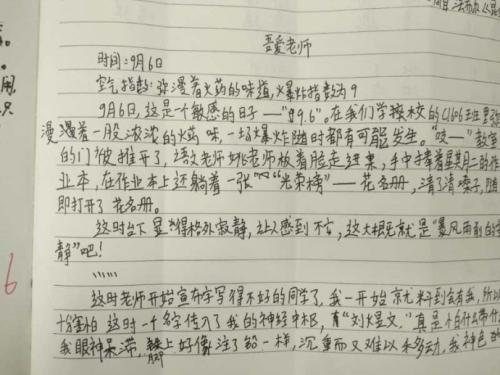 吾爱老师
时间：9月6日
空气指数：弥漫着火药的味道，爆炸指数为9
9月6日，这是一个敏感的日子——"9.6"。在我们学校的C1606班里弥
漫着一股浓浓的火药味，一场爆炸随时都有可能发生。"吱——"教室
的门被推开了，语文老师姚老师板着脸走进来，手中捧着星期二的作
业本，在作业本上还躺着一张"光荣榜"——花名册，清了清嗓子，随
即打开了花名册。
这时台下显得格外寂静，让人感到不安，这大概就是"暴风雨前的宁
静"吧！
……
这时老师开始宣布字写得不好的同学了，我一开始就料到会有我，所以
十分害怕 这时一个名字传入了我的神经中枢，"刘煜文。"真是个怕什么带什
我眼神呆滞，脚上好像注了铅一样，沉重而又难以移动，我神色
6